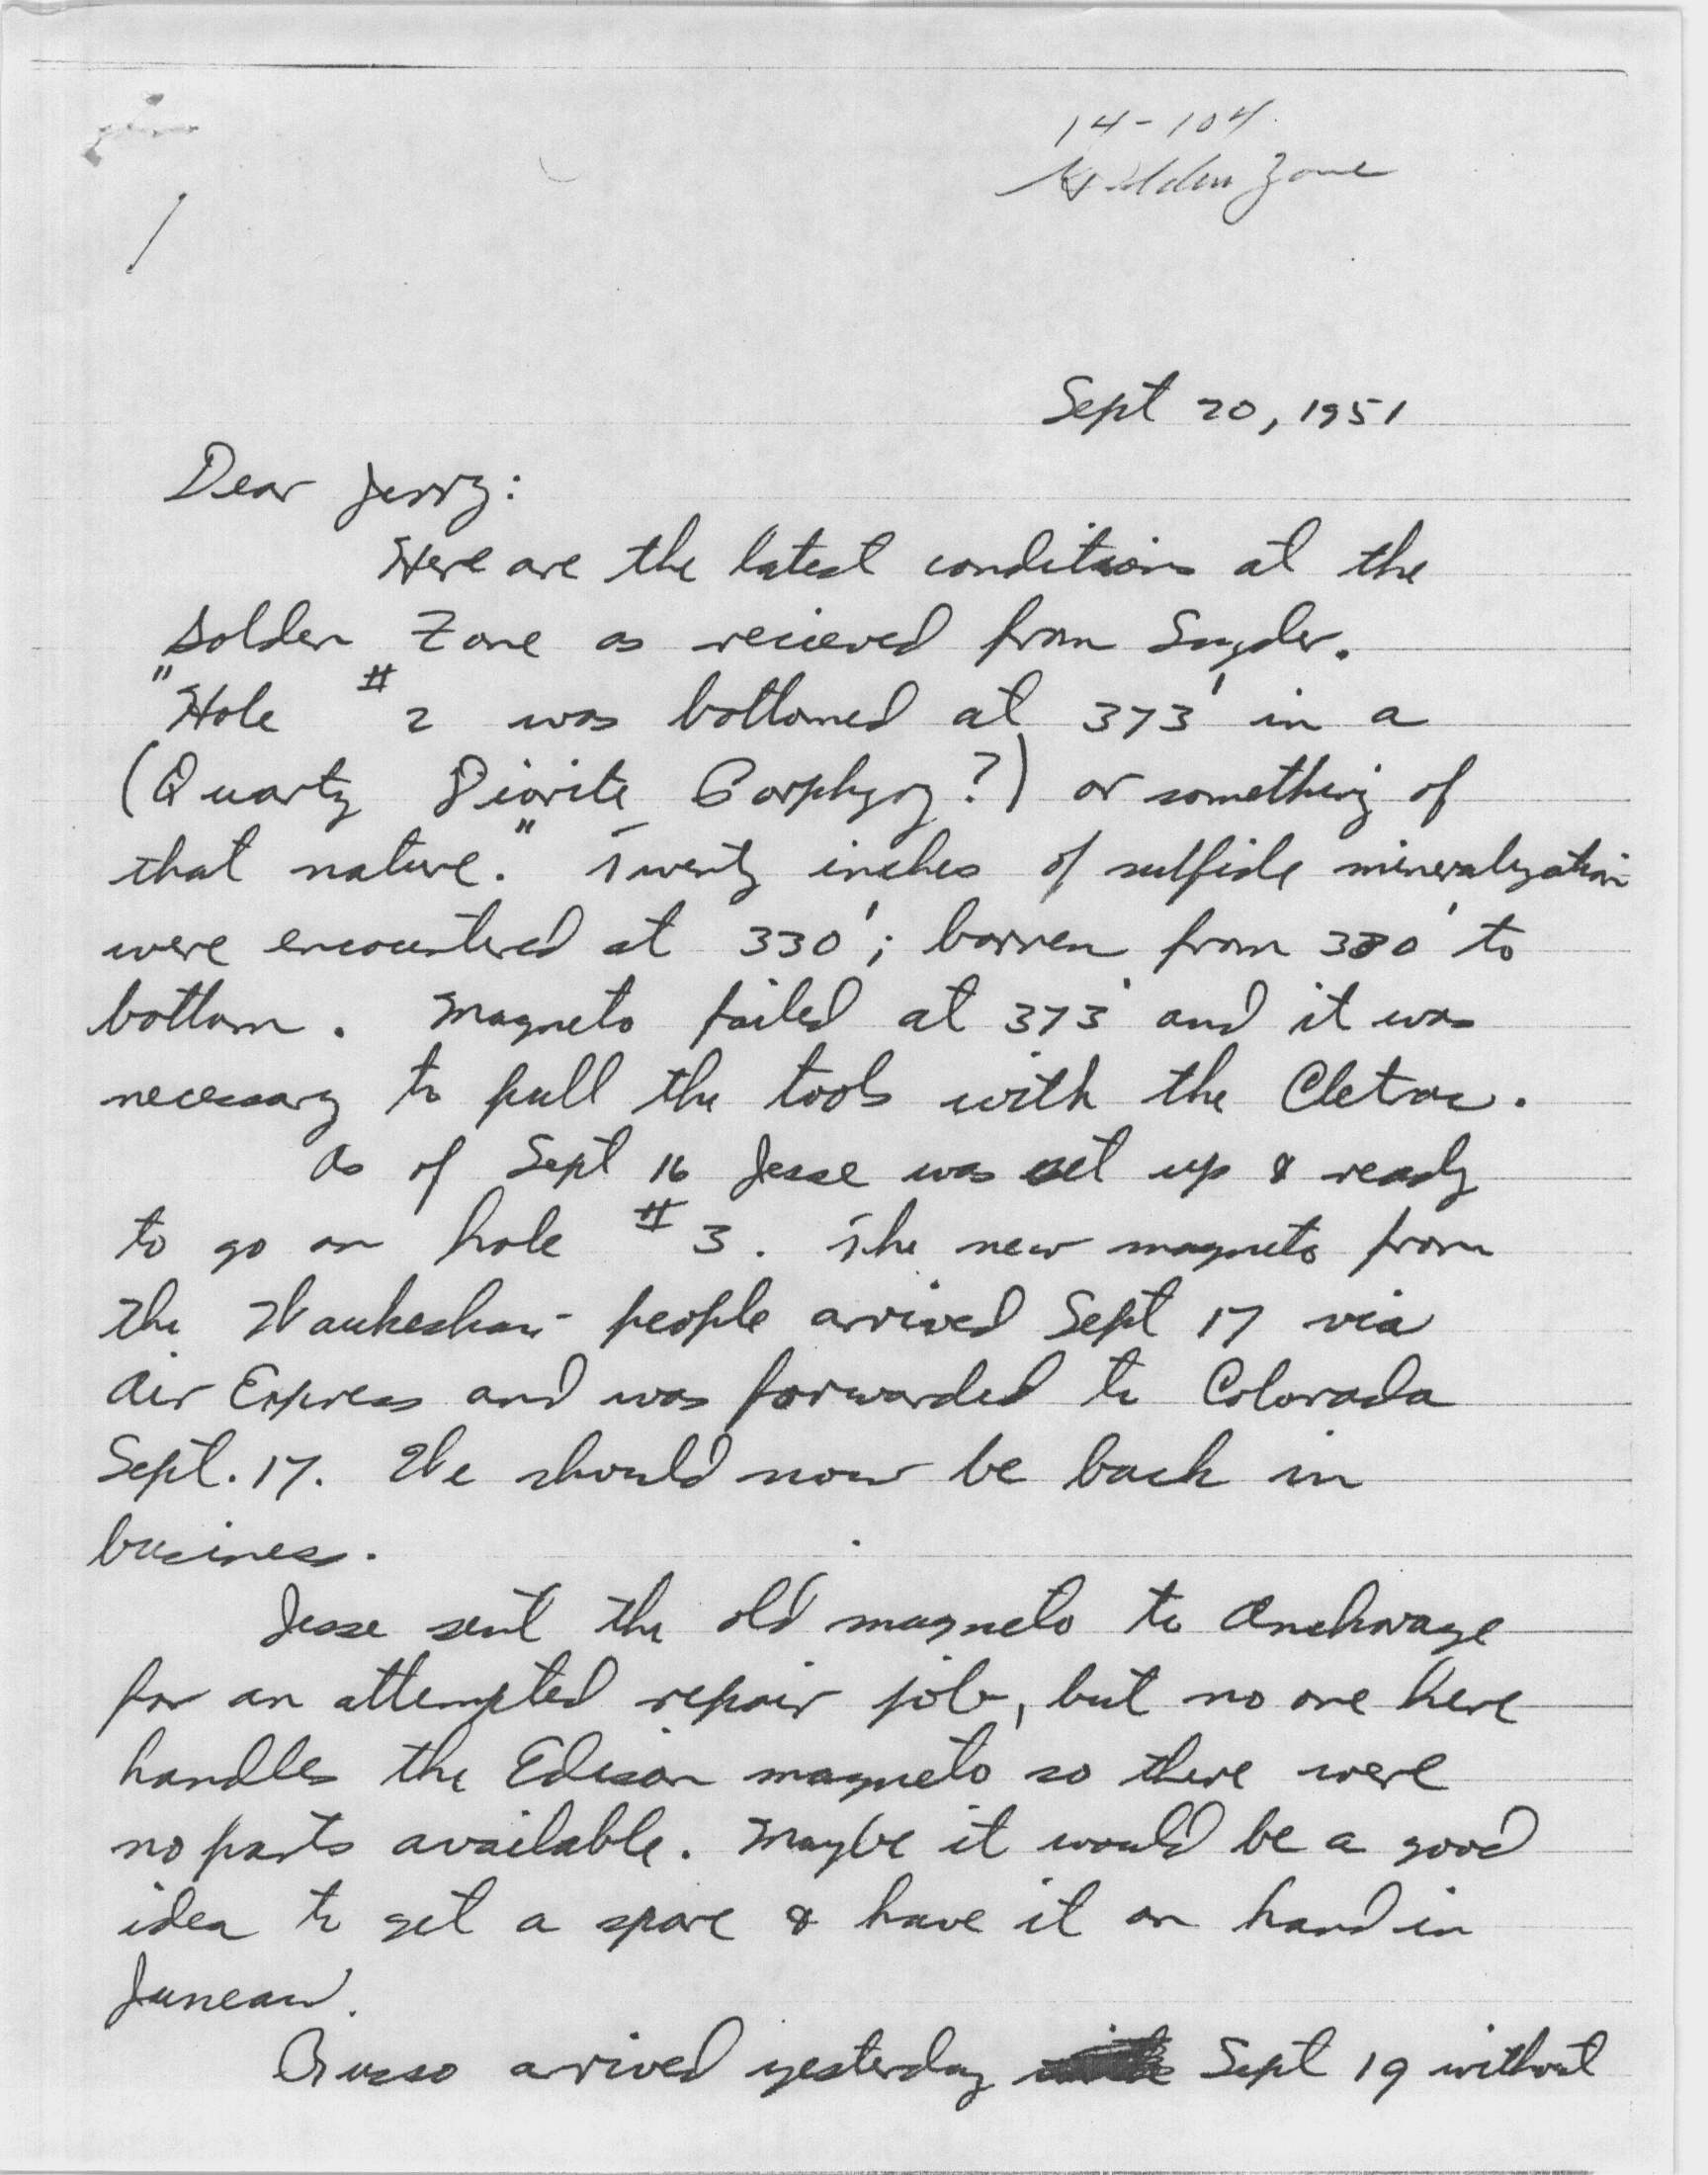 14-104
Golden Zone
Sept 20, 1951
Dear Jerry:
Here are the latest conditions at the
Golden Zone as recieved from Snyder.
"Hole #2 was bottomed at 373' in a
(Quartz Diorite Porphyry?) or something of
that nature." Twenty inches of sulfide mineralization
were encountered at 330'; barren from 330' to
bottom. Magneto failed at 373' and it was
necessary to pull the tools with the Cletrac.
As of Sept 16 Jesse was set up & ready
to go on hole #3. The new magneto from
the Waukeshaw people arrived Sept 17 via
Air Express and was forwarded to Colorado
Sept. 17. We should now be back in
business.
Jesse sent the old magneto to Anchorage
for an attempted repair job, but no one here
handles the Edison magneto so there were
no parts available. Maybe it would be a good
idea to get a spare & have it on hand in
Juneau.
Russo arrived yesterday Sept 19 without